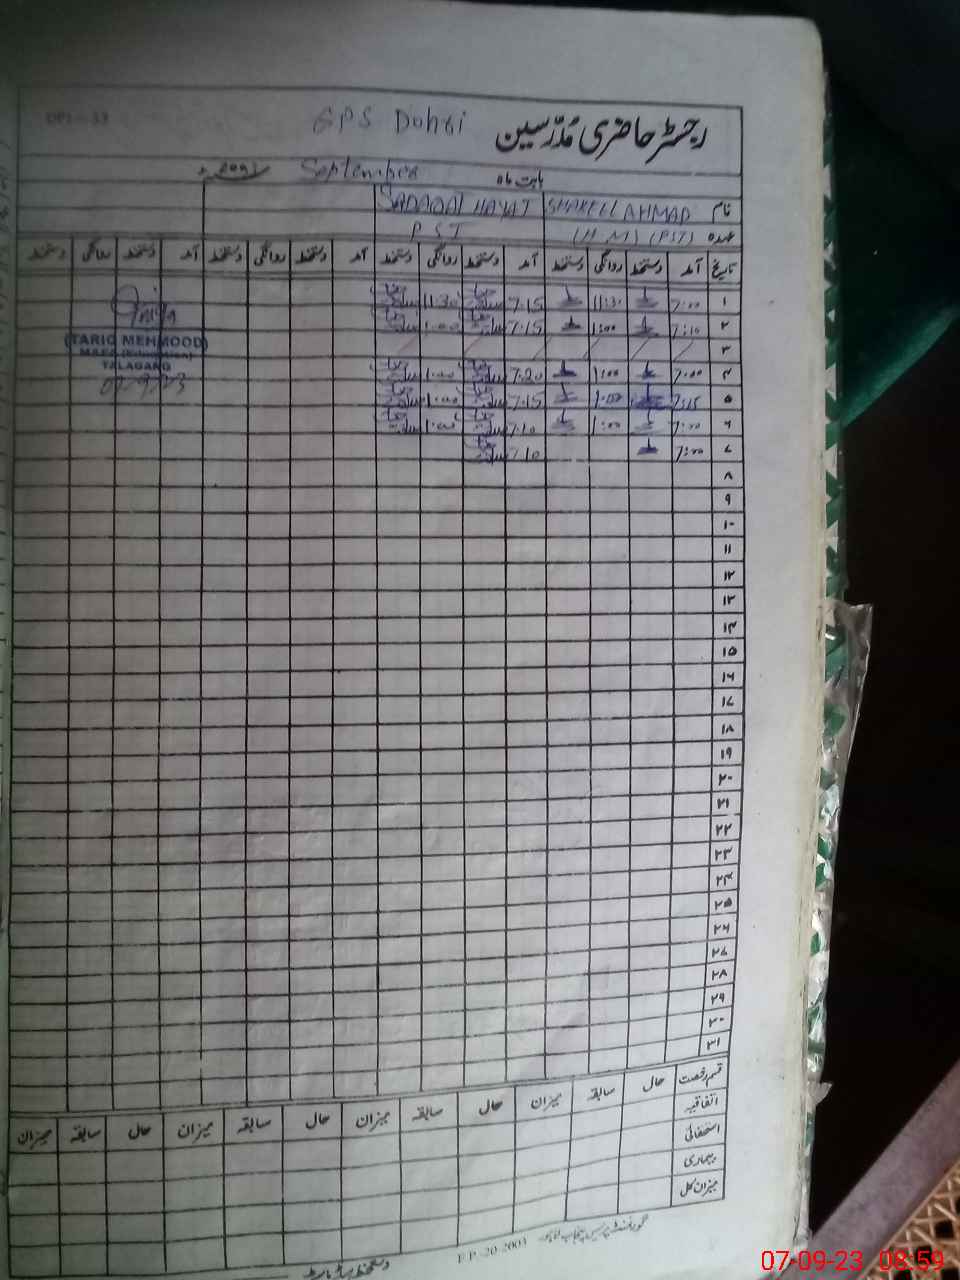 DPI-33
GPS Dohri رجسٹر حاضری مدرسین
بابت ماہ September
نام SHAKEEL AHMAD SADAQAT HAYAT
عہدہ (H.M) (PST) PST
تاریخ آمد دستخط روانگی دستخط آمد دستخط روانگی دستخط آمد دستخط روانگی دستخط آمد دستخط روانگی دستخط
۱ 7:00 11:30 7.15 11:30
۲ 7:10 1:00 7.15 1:00
۳
۴ 7:00 1:00 7.20 1:00
۵ 7:15 1:00 7.15 1:00
۶ 7:00 1:00 7.10 1:00
۷ 7:00 7.10
(TARIQ MEHMOOD)
TALAGANG
۸
۹
۱۰
۱۱
۱۲
۱۳
۱۴
۱۵
۱۶
۱۷
۱۸
۱۹
۲۰
۲۱
۲۲
۲۳
۲۴
۲۵
۲۶
۲۷
۲۸
۲۹
۳۰
۳۱
قسم رخصت حال سابقہ میزان حال سابقہ میزان حال سابقہ میزان حال سابقہ میزان
اتفاقیہ
استحقاقی
بیماری
میزان کل
گورنمنٹ پریس پنجاب لاہور F.P.-20-2003
دستخط ہیڈ ماسٹر
07-09-23 08:59